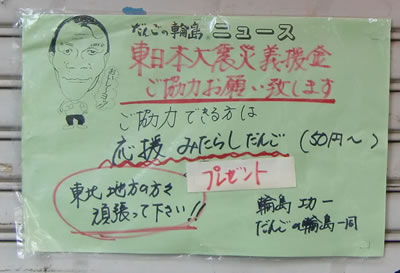 だんごの輪島 ニュース
東日本大震災義援金
ご協力お願い致します
ご協力できる方は
応援 みたらしだんご (50円〜)
プレゼント
東北地方の方々
頑張って下さい!!
輪島功一
だんごの輪島一同